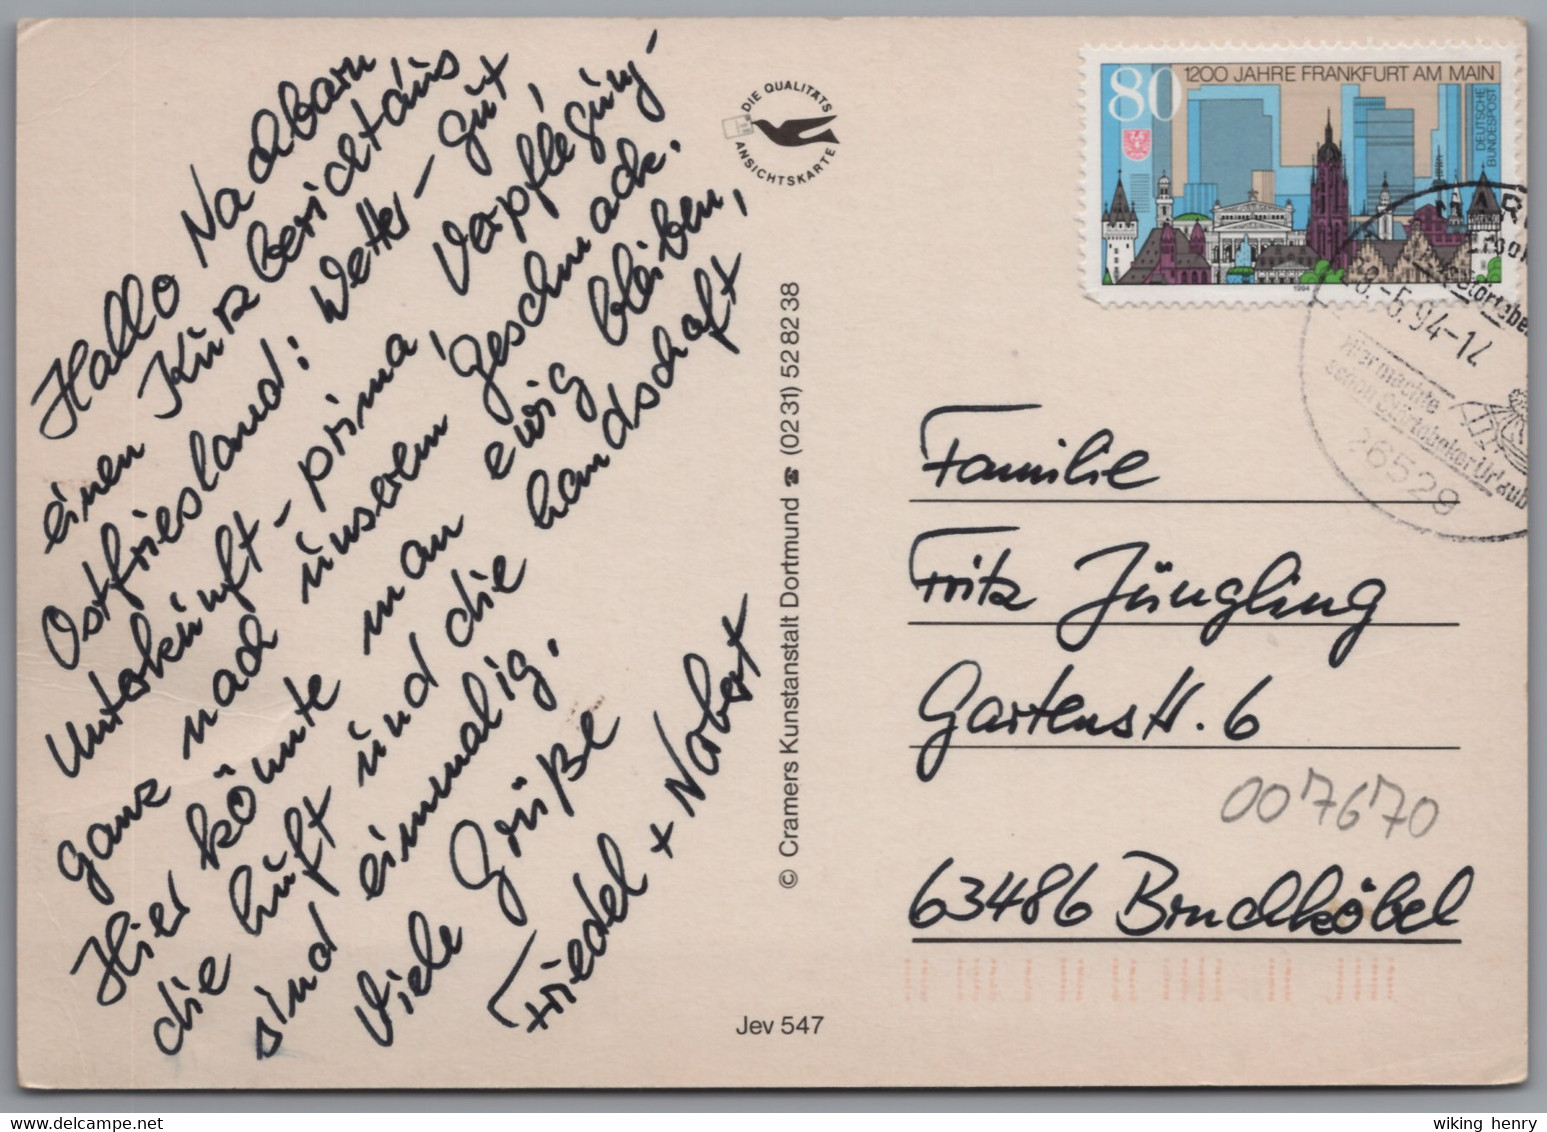 Hallo Nachbarn
einen Kürzbericht aus
Ostfriesland: Wetter - gut
Unterkünft - prima, Verpflegüng -
ganz nach ünserem Geschmack.
Hier könnte man ewig bleiben,
die Lüft ünd die Landschaft
sind einmalig.
Viele Grüße
Friedel + Norbert
DIE QUALITÄTS
ANSICHTSKARTE
© Cramers Kunstanstalt Dortmund ☎ (02 31) 52 82 38
Jev 547
80
1200 JAHRE FRANKFURT AM MAIN
DEUTSCHE
BUNDESPOST
1994
-5.94-12
Hier machte
schon Störtebeker Urlaub
26529
Familie
Fritz Jüngling
Gartenstr. 6
007670
63486 Bruchköbel
wiking henry